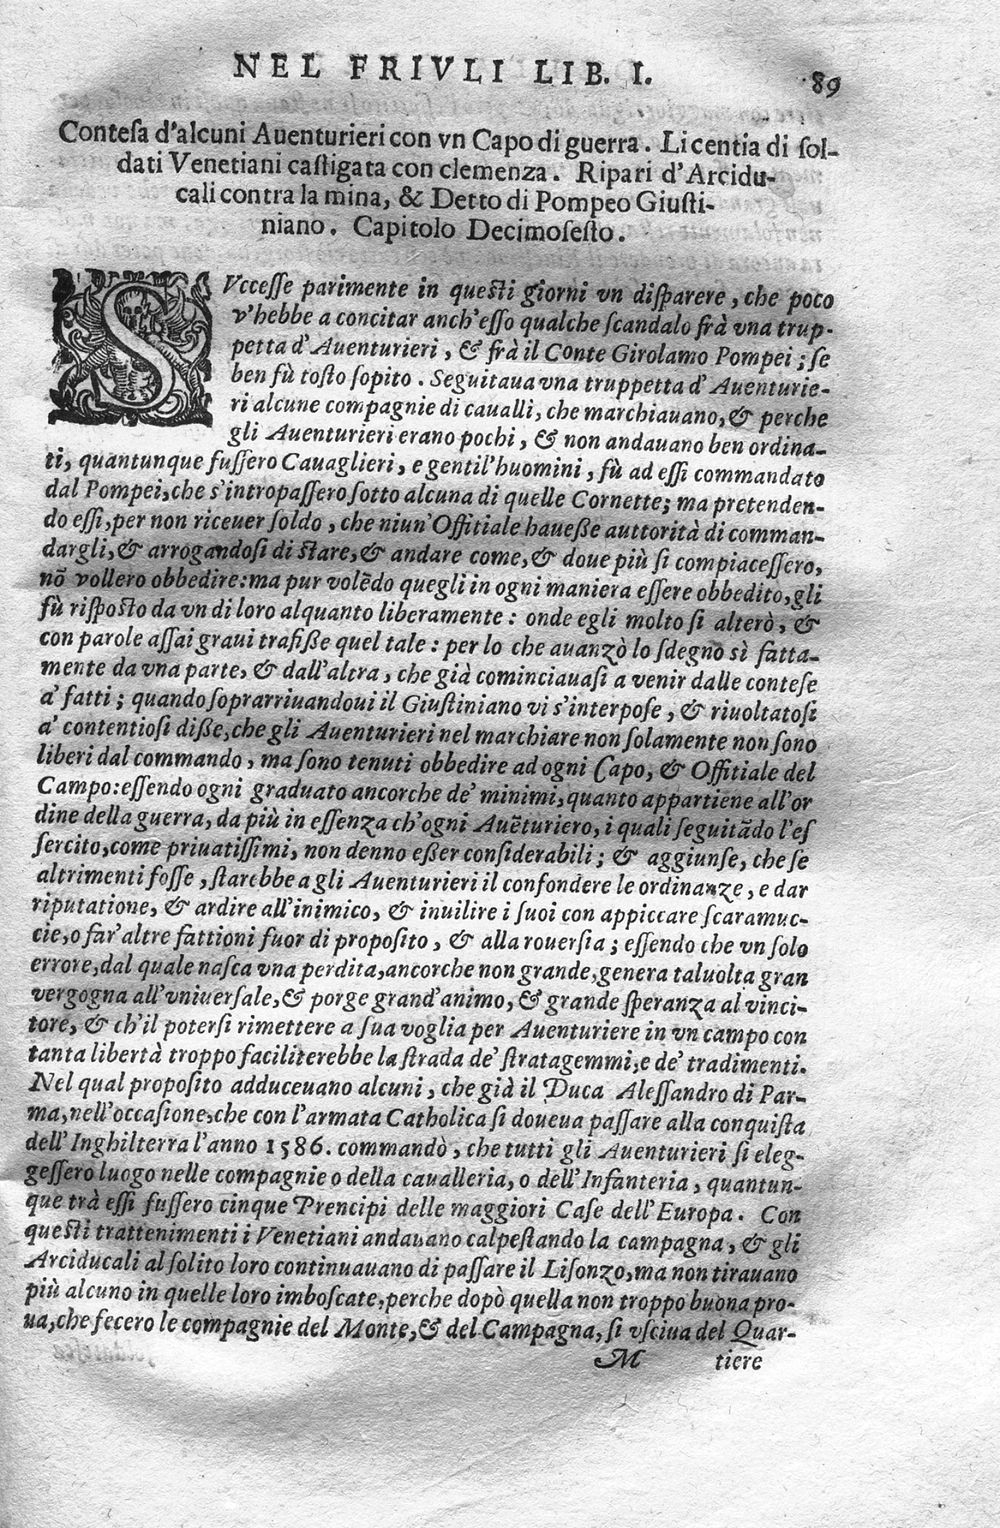 NEL FRIVLI LIB. I. 89
Conteſa d'alcuni Auenturieri con vn Capo di guerra. Licentia di ſol-
dati Venetiani caſtigata con clemenza. Ripari d'Arcidu-
cali contra la mina, & Detto di Pompeo Giuſti-
niano. Capitolo Decimoſeſto.
SVcceſſe parimente in queſti giorni vn diſparere, che poco
v'hebbe a concitar anch'eſſo qualche ſcandalo frà vna trup-
petta d'Auenturieri, & frà il Conte Girolamo Pompei; ſe
ben fù toſto ſopito. Seguitaua vna truppetta d'Auenturie-
ri alcune compagnie di caualli, che marchiauano, & perche
gli Auenturieri erano pochi, & non andauano ben ordina-
ti, quantunque fuſſero Cauaglieri, e gentil'huomini, fù ad eſſi commandato
dal Pompei, che s'intropaſſero ſotto alcuna di quelle Cornette; ma pretenden-
do eſſi, per non riceuer ſoldo, che niun'Offitiale haueße auttorità di comman-
dargli, & arrogandoſi di ſtare, & andare come, & doue più ſi compiaceſſero,
nõ vollero obbedire: ma pur volẽdo quegli in ogni maniera eſſere obbedito, gli
fù riſpoſto da vn di loro alquanto liberamente: onde egli molto ſi alterò, &
con parole aſſai graui trafiße quel tale: per lo che auanzò lo ſdegno sì fatta-
mente da vna parte, & dall'altra, che già cominciauaſi a venir dalle conteſe
a' fatti; quando ſoprarriuandoui il Giuſtiniano vi s'interpoſe, & riuoltatoſi
a' contentioſi diße, che gli Auenturieri nel marchiare non ſolamente non ſono
liberi dal commando, ma ſono tenuti obbedire ad ogni Capo, & Offitiale del
Campo: eſſendo ogni graduato ancorche de' minimi, quanto appartiene all'or
dine della guerra, da più in eſſenza ch'ogni Auẽturiero, i quali ſeguitãdo l'eſ
ſercito, come priuatiſſimi, non denno eßer conſiderabili; & aggiunſe, che ſe
altrimenti foſſe, ſtarebbe a gli Auenturieri il confondere le ordinanze, e dar
riputatione, & ardire all'inimico, & inuilire i ſuoi con appiccare ſcaramuc-
cie, o far'altre fattioni fuor di propoſito, & alla rouerſia; eſſendo che vn ſolo
errore, dal quale naſca vna perdita, ancorche non grande, genera taluolta gran
vergogna all'vniuerſale, & porge grand'animo, & grande ſperanza al vinci-
tore, & ch'il poterſi rimettere a ſua voglia per Auenturiere in vn campo con
tanta libertà troppo faciliterebbe la ſtrada de' ſtratagemmi, e de' tradimenti.
Nel qual propoſito adduceuano alcuni, che già il Duca Aleſſandro di Par-
ma, nell'occaſione, che con l'armata Catholica ſi doueua paſſare alla conquiſta
dell'Inghilterra l'anno 1586. commandò, che tutti gli Auenturieri ſi eleg-
geſſero luogo nelle compagnie o della caualleria, o dell'Infanteria, quantun-
que trà eſſi fuſſero cinque Prencipi delle maggiori Caſe dell'Europa. Con
queſti trattenimenti i Venetiani andauano calpeſtando la campagna, & gli
Arciducali al ſolito loro continuauano di paſſare il Liſonzo, ma non tirauano
più alcuno in quelle loro imboſcate, perche dopò quella non troppo buona pro-
ua, che fecero le compagnie del Monte, & del Campagna, ſi vſciua del Quar-
M tiere